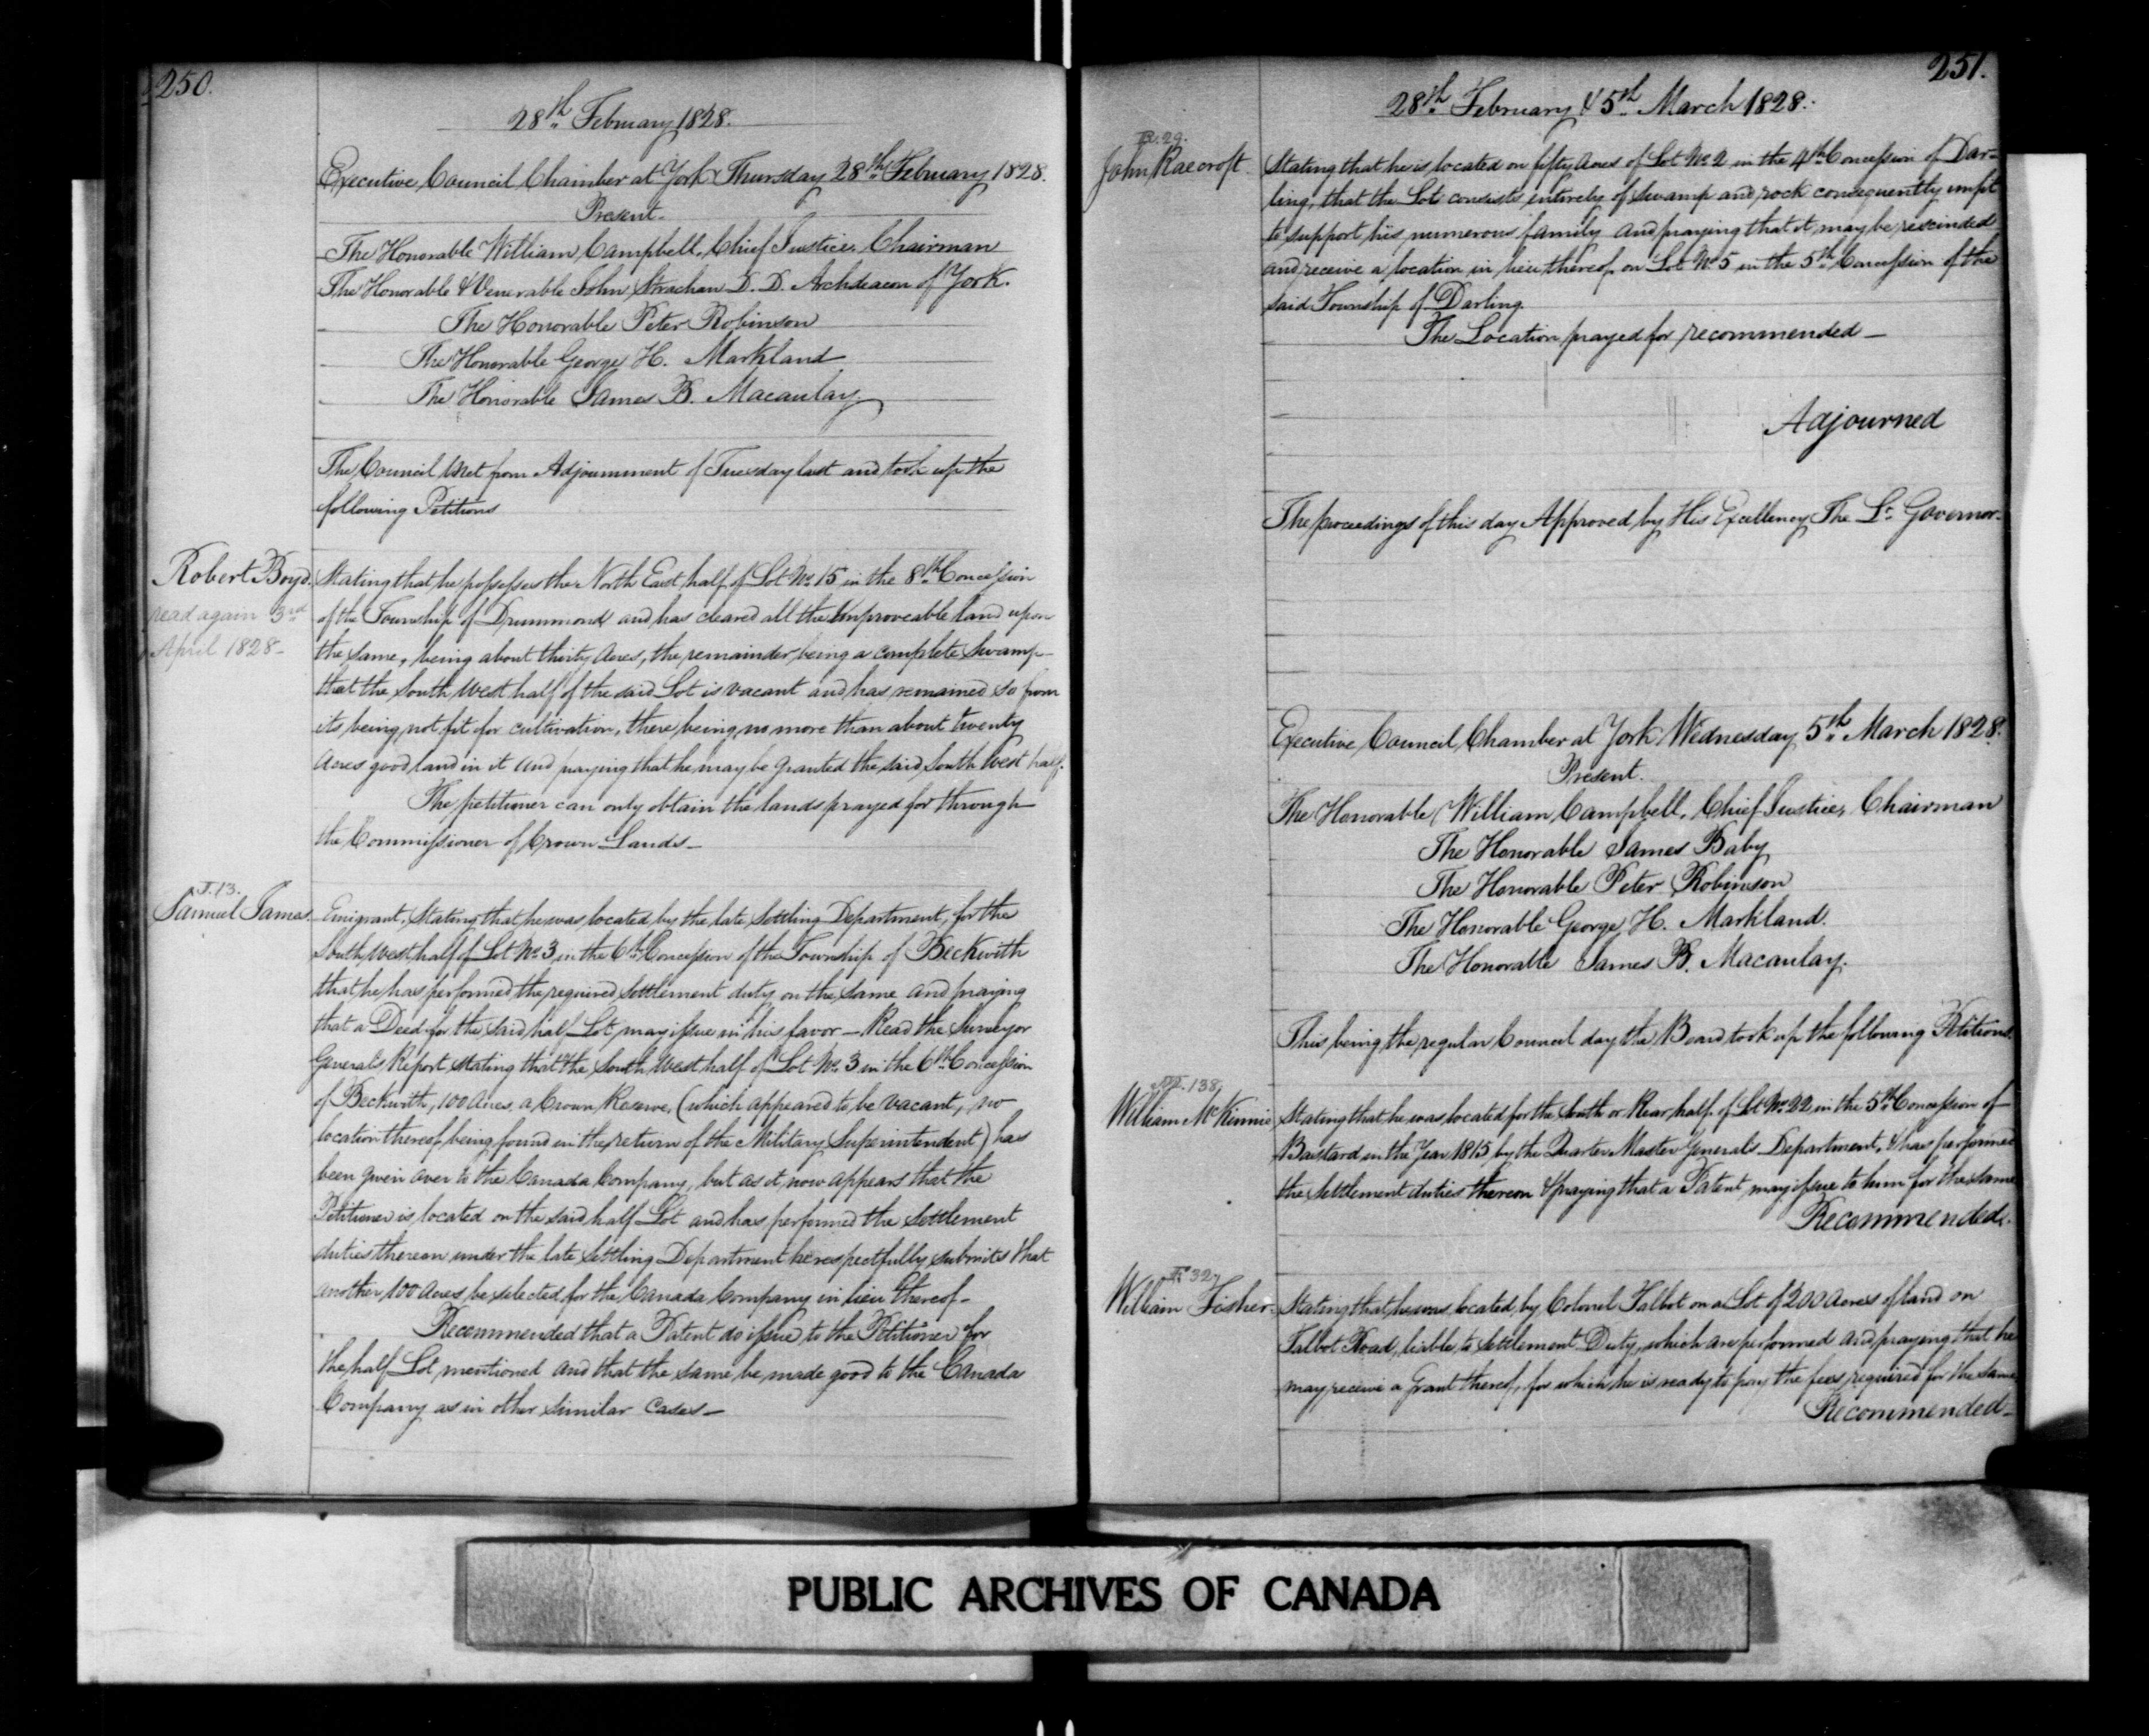 250.
28th February 1828.
Executive Council Chamber at York Thursday 28th February 1828.
Present.
The Honorable William Campbell, Chief Justice, Chairman
The Honorable & Venerable John Strachan D. D. Archdeacon of York.
The Honorable Peter Robinson
The Honorable George H. Markland
The Honorable James B. Macaulay.
The Council met from Adjournment of Tuesday last and took up the
following Petitions
Robert Boyd.
read again 3rd
April 1828-
Stating that he possesses the North East half of Lot No. 15 in the 8th Concession
of the Township of Drummond and has cleared all the Improveable land upon
the same, being about thirty Acres, the remainder being a complete Swamp-
that the South West half of the said Lot is vacant and has remained so from
its being not fit for cultivation, there being no more than about twenty
Acres good land in it and praying that he may be granted the said South West half.
The petitioner can only obtain the lands prayed for through
the Commissioner of Crown Lands-
J. 13.
Samuel James.
Emigrant, Stating that he was located by the late Settling Department, for the
South West half of Lot No. 3 in the 6th Concession of the Township of Beckwith
that he has performed the required Settlement duty on the same and praying
that a Deed for the said half Lot may issue in his favor - Read the Surveyor
General's Report Stating that the South West half of Lot No. 3 in the 6th Concession
of Beckwith, 100 Acres a Crown Reserve, (which appeared to be vacant, no
location thereof being found in the return of the Military Superintendent) has
been given over to the Canada Company, but as it now appears that the
Petitioner is located on the said half Lot and has performed the Settlement
duties thereon under the late Settling Department he respectfully submits that
another 100 Acres be selected for the Canada Company in lieu thereof-
Recommended that a Patent do issue to the Petitioner for
the half Lot mentioned and that the same be made good to the Canada
Company as in other similar cases-
251.
28th February & 5th March 1828.
R. 29.
John Raecroft.
Stating that he is located on fifty Acres of Lot No. 2 in the 4th Concession of Dar-
ling, that the Lot consists entirely of Swamp and rock consequently unfit
to support his numerous family and praying that it may be rescinded
and receive a location in lieu thereof on Lot No 5 in the 5th Concession of the
said Township of Darling.
The Location prayed for recommended-
Adjourned
The proceedings of this day Approved by His Excellency The Lt. Governor-
Executive Council Chamber at York Wednesday 5th March 1828.
Present.
The Honorable William Campbell, Chief Justice, Chairman
The Honorable James Baby
The Honorable Peter Robinson
The Honorable George H. Markland.
The Honorable James B. Macaulay.
This being the regular Council day the Board took up the following Petitions.
138
William McKinnie
Stating that he was located for the South or Rear half of Lot No. 22 in the 5th Concession of
Bastard in the Year 1815 by the Quarter Master Generals Department, & has performed
the settlement duties thereon & praying that a Patent may issue to him for the same
Recommended.
F 32
William Fisher.
Stating that he was located by Colonel Talbot on a Lot of 200 Acres of land on
Talbot Road, liable to Settlement Duty, which are performed and praying that he
may receive a Grant thereof, for which he is ready to pay the fees required for the same
Recommended-
PUBLIC ARCHIVES OF CANADA